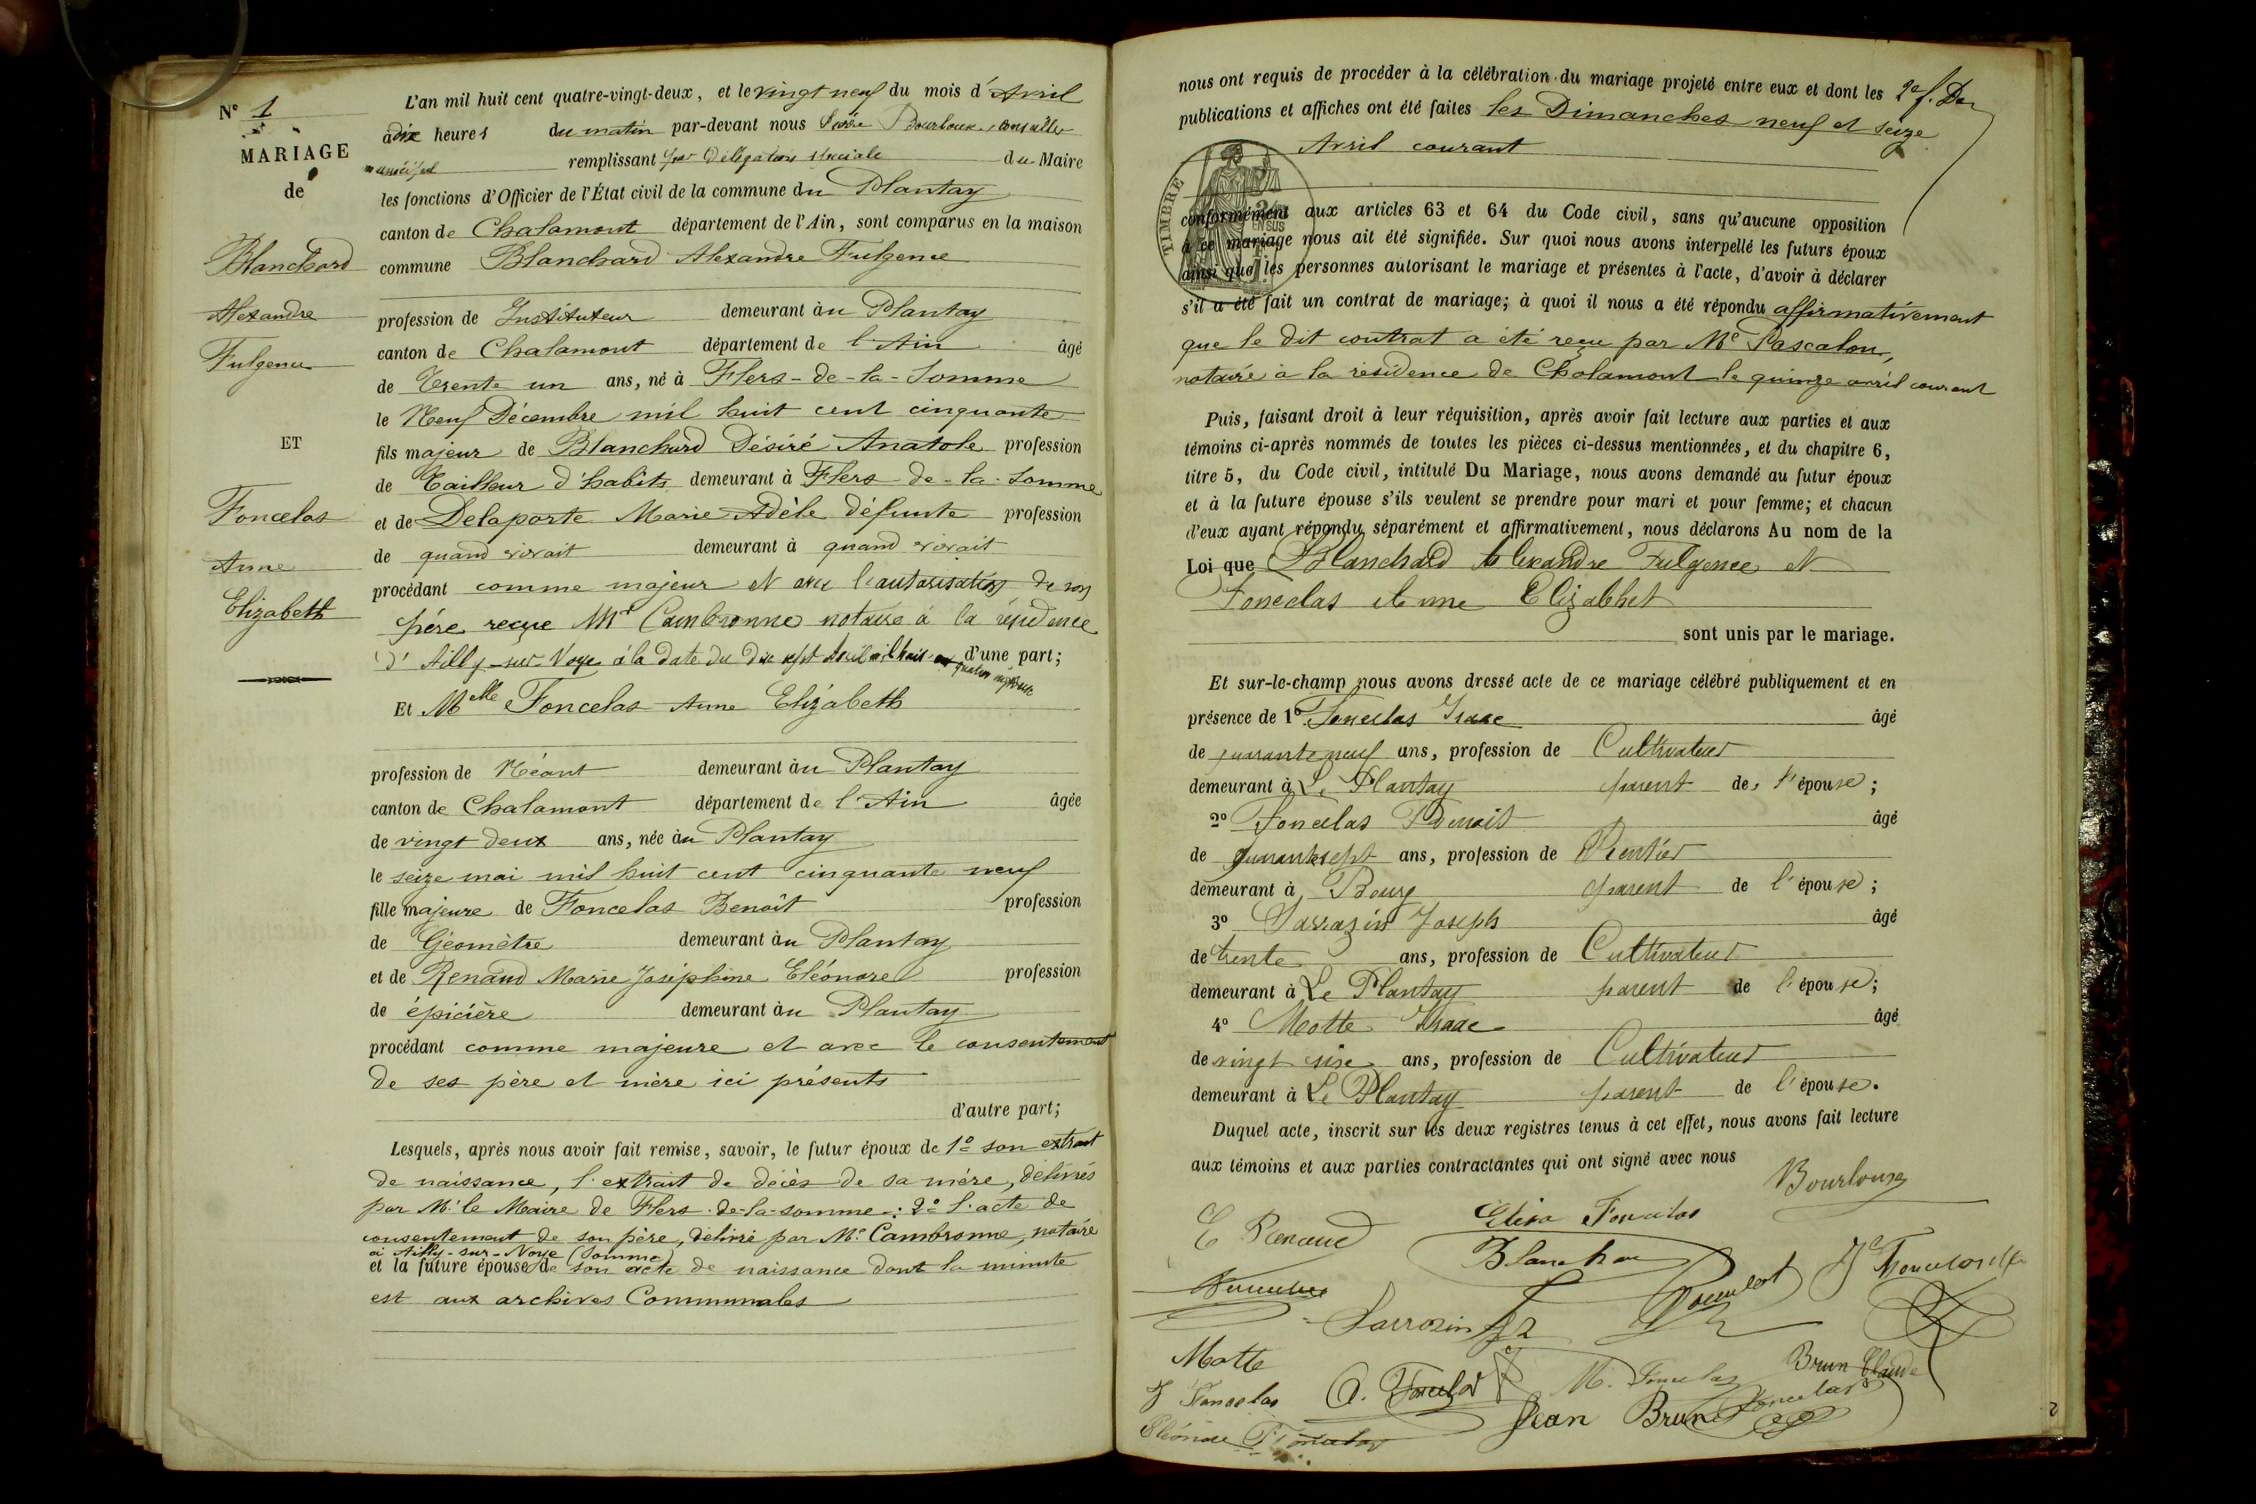 N° 1
MARIAGE
de
Blanchard
Alexandre
Fulgence
ET
Foncelas
Anne
Elizabeth
L'an mil huit cent quatre-vingt-deux, et le vingt neuf du mois d'Avril
à dix heures du matin par-devant nous Bourloux, conseiller
municipal remplissant par Délégation spéciale du Maire
les fonctions d'Officier de l'État civil de la commune du Plantay
canton de Chalamont département de l'Ain, sont comparus en la maison
commune Blanchard Alexandre Fulgence
profession de Instituteur demeurant au Plantay
canton de Chalamont département de l'Ain âgé
de Trente un ans, né à Flers-de-la-Somme
le Neuf Décembre mil huit cent cinquante
fils majeur de Blanchard Désiré Anatole profession
de Tailleur d'habits demeurant à Flers-de-la-Somme
et de Delaporte Marie Adèle défunte profession
de quand vivait demeurant à quand vivait
procédant comme majeur et avec l'autorisation de son
père reçue Mr Cambronne notaire à la résidence
d'Ailly-sur-Noye à la date du dix sept Avril mil huit cent quatre vingt deux d'une part;
Et Melle Foncelas Anne Elizabeth
profession de Néant demeurant au Plantay
canton de Chalamont département de l'Ain âgée
de vingt deux ans, née au Plantay
le seize mai mil huit cent cinquante neuf
fille majeure de Foncelas Benoît profession
de Géomètre demeurant au Plantay
et de Renaud Marie Joséphine Eléonore profession
de épicière demeurant au Plantay
procédant comme majeure et avec le consentement
de ses père et mère ici présents
d'autre part;
Lesquels, après nous avoir fait remise, savoir, le futur époux de 1° son extrait
de naissance, l'extrait de décès de sa mère, délivrés
par Mr le Maire de Flers-de-la-Somme; 2° l'acte de
consentement de son père, délivré par Me Cambronne, notaire
à Ailly-sur-Noye (Somme)
et la future épouse de son acte de naissance dont la minute
est aux archives Communales
nous ont requis de procéder à la célébration du mariage projeté entre eux et dont les
publications et affiches ont été faites les Dimanches neuf et seize
Avril courant
TIMBRE
EN SUS
conformément aux articles 63 et 64 du Code civil, sans qu'aucune opposition
à ce mariage nous ait été signifiée. Sur quoi nous avons interpellé les futurs époux
ainsi que les personnes autorisant le mariage et présentes à l'acte, d'avoir à déclarer
s'il a été fait un contrat de mariage; à quoi il nous a été répondu affirmativement
que le dit contrat a été reçu par Me Pascalon,
notaire à la résidence de Chalamont le quinze avril courant
Puis, faisant droit à leur réquisition, après avoir fait lecture aux parties et aux
témoins ci-après nommés de toutes les pièces ci-dessus mentionnées, et du chapitre 6,
titre 5, du Code civil, intitulé Du Mariage, nous avons demandé au futur époux
et à la future épouse s'ils veulent se prendre pour mari et pour femme; et chacun
d'eux ayant répondu séparément et affirmativement, nous déclarons Au nom de la
Loi que Blanchard Alexandre Fulgence et
Foncelas Anne Elizabhet
sont unis par le mariage.
Et sur-le-champ nous avons dressé acte de ce mariage célébré publiquement et en
présence de 1° Foncelas Isaac âgé
de quarante neuf ans, profession de Cultivateur
demeurant à Le Plantay parent de l'épouse;
2° Foncelas Benoit âgé
de quarante sept ans, profession de Rentier
demeurant à Bourg parent de l'épouse;
3° Sarrazin Joseph âgé
de trente ans, profession de Cultivateur
demeurant à Le Plantay parent de l'épouse;
4° Motte Isaac âgé
de vingt six ans, profession de Cultivateur
demeurant à Le Plantay parent de l'épouse.
Duquel acte, inscrit sur les deux registres tenus à cet effet, nous avons fait lecture
aux témoins et aux parties contractantes qui ont signé avec nous
Bourloux
E Renaud Elisa Foncelas
Blanchard
Sarrazin
Motte
Brun Claude
J Foncelas
M. Foncelas
Jean Brun Foncelas
Eléonore Foncelas
2